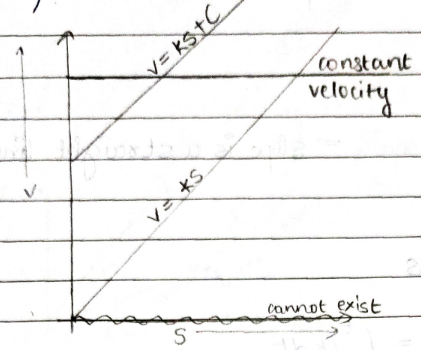 V = KS + C
constant
velocity
V
V = KS
cannot exist
S